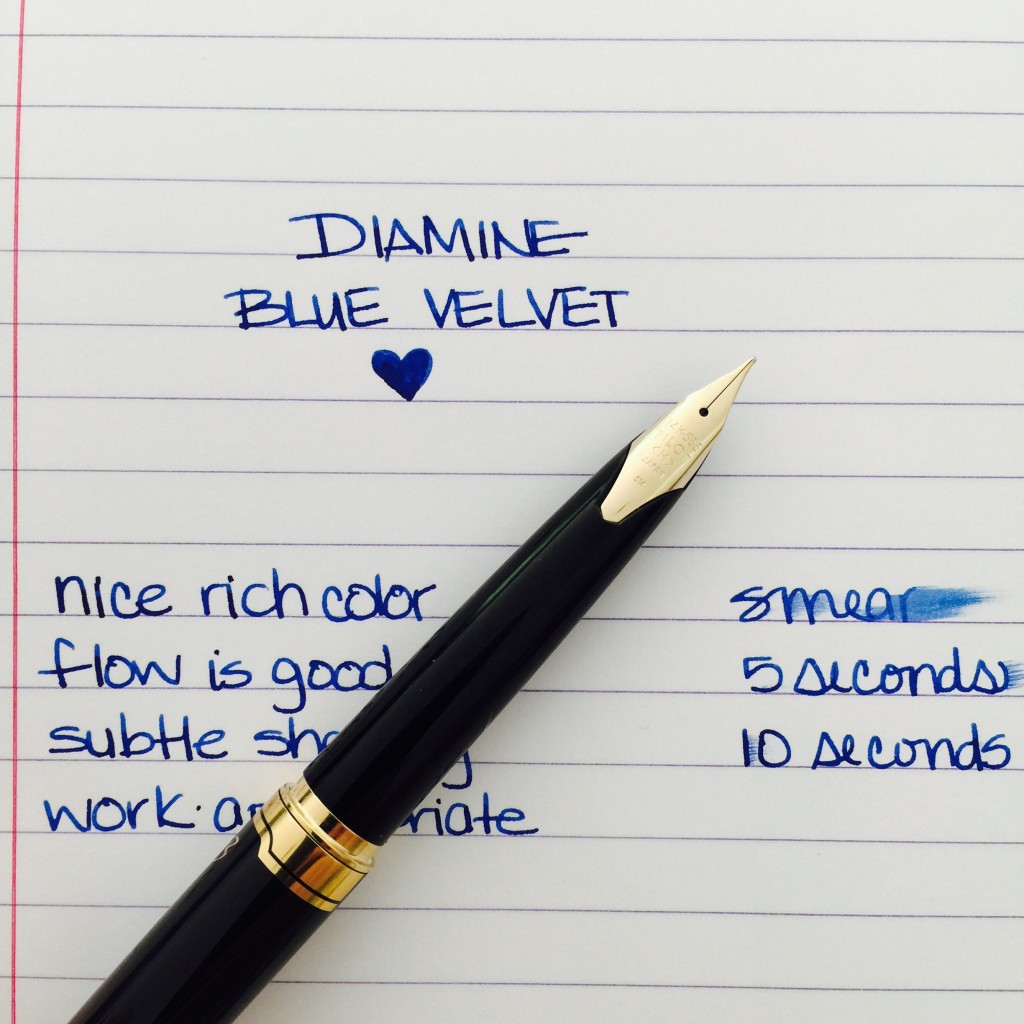 DIAMINE
BLUE VELVET
nice rich color
flow is good
subtle
work
smear
5 seconds
10 seconds